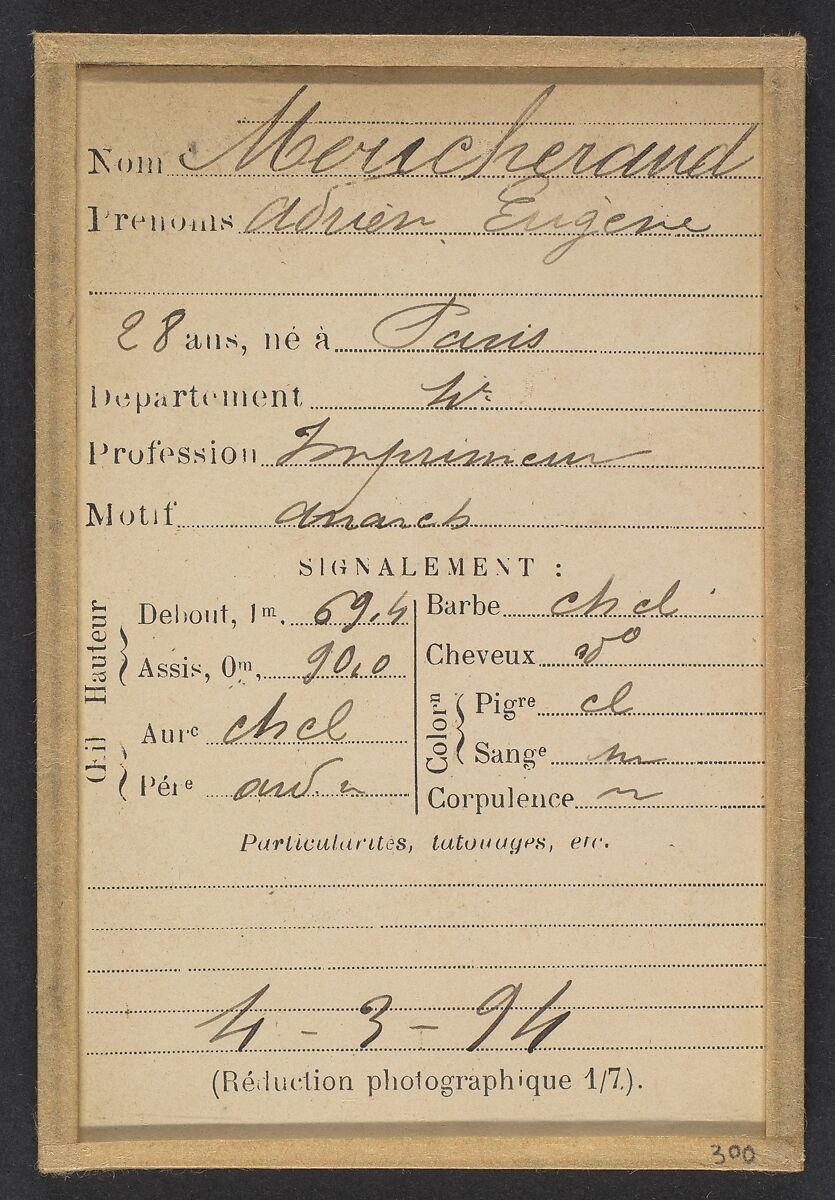 Nom Moucheraud
Prénoms Adrien, Eugène
28 ans, né à Paris
Département
Profession Imprimeur
Motif anarch
SIGNALEMENT :
Hauteur
Debout, 1m, 69,4
Assis, 0m, 90,0
Œil
Aurᵉ ch cl
Périᵉ
Barbe ch cl
Cheveux dº
Colorⁿ
Pigʳᵉ cl
Sangᵉ m
Corpulence m
Particularités, tatouages, etc.
4 - 3 - 94
(Réduction photographique 1/7.).
300